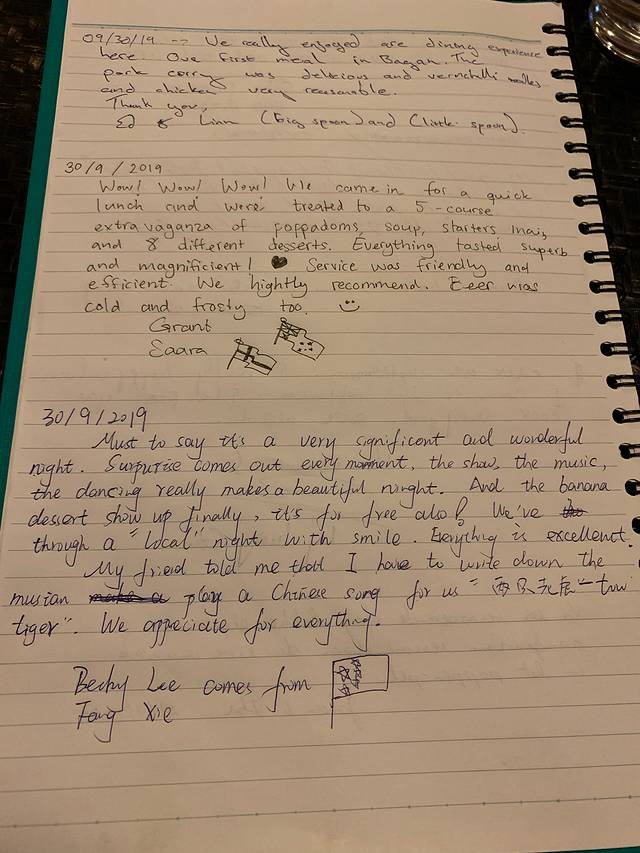 09/30/19 -> We really engoyed are dining experience
here. Our first meal in Baagan. The
pork corry was delicious and vermchilli noodles
and chicken very reasonable.
Thank you,
Ed & Linn (Big spoon) and (little spoon).
30/9/2019
Wow! Wow! Wow! We came in for a quick
lunch and were treated to a 5-course
extravaganza of poppadoms, soup, starters, mains,
and 8 different desserts. Everything tasted superb
and magnificient! ♥ Service was friendly and
efficient. We hightly recommend. Beer was
cold and frosty too. :)
Grant
Saara
30/9/2019
Must to say it's a very significant and wonderful
night. Surpurize comes out every moment, the show, the music,
the dancing really makes a beautiful night. And the banana
dessert show up finally, it's for free also! We've
through a "local" night with smile. Everything is excellenet.
My friend told me that I have to write down the
musian play a Chinese song for us " - tow
tiger". We appeciate for everything.
Becky Lee comes from
Fang Xie